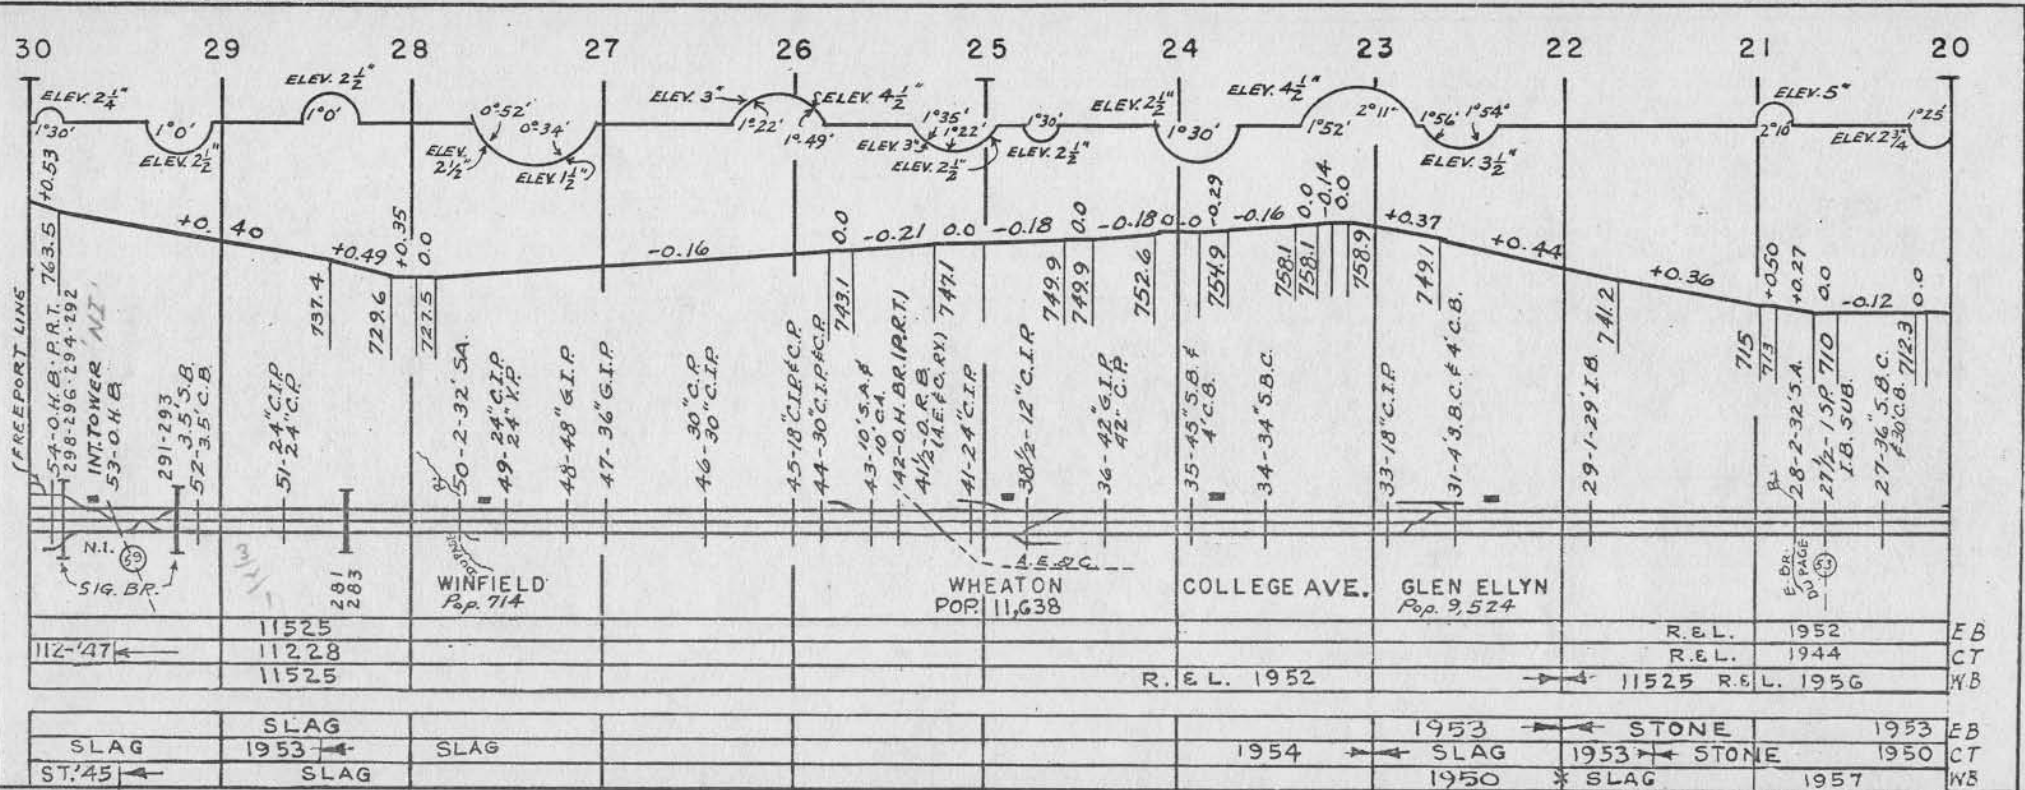 30 29 28 27 26 25 24 23 22 21 20
ELEV. 2 1/4" 1°30'
1°0' ELEV. 2 1/2"
ELEV. 2 1/2" 1°0'
0°52' 0°34' ELEV. 2 1/2" ELEV. 1 1/2"
ELEV. 3" 1°22' ELEV. 4 1/2" 1°49'
1°35' 1°22' ELEV. 3" ELEV. 2 1/2"
1°30' ELEV. 2 1/2"
ELEV. 2 1/2" 1°30'
ELEV. 4 1/2" 1°52' 2°11'
1°56' 1°54' ELEV. 3 1/2"
ELEV. 5" 2°10'
1°25' ELEV. 2 3/4"
+0.53 +0.40 +0.49 +0.35 0.0 -0.16 0.0 -0.21 0.0 -0.18 0.0 -0.18 0.0 -0.29 -0.16 0.0 -0.14 0.0 +0.37 +0.44 +0.36 +0.50 +0.27 0.0 -0.12 0.0
763.5 737.4 729.6 727.5 743.1 747.1 749.9 749.9 752.6 754.9 758.1 758.1 758.9 749.1 741.2 715 713 710 712.3
FREEPORT LINE
54-O.H.B. P.R.T.
298-296-294-292
INT. TOWER "NI"
53-O.H.B.
291-293
52-3.5' S.B.
3.5' C.B.
51-24" C.I.P.
24" C.P.
50-2-32' S.A.
49-24" C.I.P.
24" V.P.
48-48" G.I.P.
47-36" G.I.P.
46-30" C.P.
30" C.I.P.
45-18" C.I.P. & C.P.
44-30" C.I.P. & C.P.
43-10' S.A. &
10' C.A.
42-O.H. BR. (P.R.T.)
41 1/2-O.R.B.
(A.E. & C. RY.)
41-24" C.I.P.
38 1/2-12" C.I.P.
36-42" G.I.P.
42" C.P.
35-45" S.B. &
4' C.B.
34-34" S.B.C.
33-18" C.I.P.
31-4' S.B.C. & 4' C.B.
29-1-29' I.B.
28-2-32' S.A.
27 1/2-1 SP.
I.B. SUB.
27-36" S.B.C.
& 30 C.B.
N.I.
59
SIG. BR.
281
283
DU PAGE
R.
WINFIELD
Pop. 714
A.E. & C.
WHEATON
POP. 11,638
COLLEGE AVE.
GLEN ELLYN
Pop. 9,524
R.
E. BR.
DU PAGE
53
11525 R.& L. 1952 EB
112-'47 11228 R.& L. 1944 CT
11525 R.& L. 1952 11525 R.& L. 1956 WB
SLAG 1953 STONE 1953 EB
SLAG 1953 SLAG 1954 SLAG 1953 STONE 1950 CT
ST.'45 SLAG 1950 SLAG 1957 WB